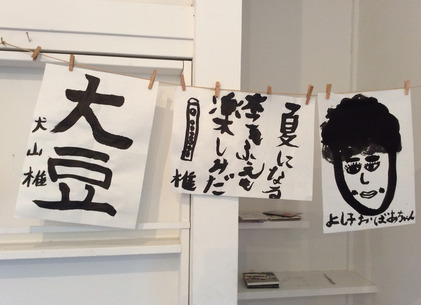 大豆
犬山椎
夏になる
本もふえも
楽しみだ
椎
よし子おばあちゃん